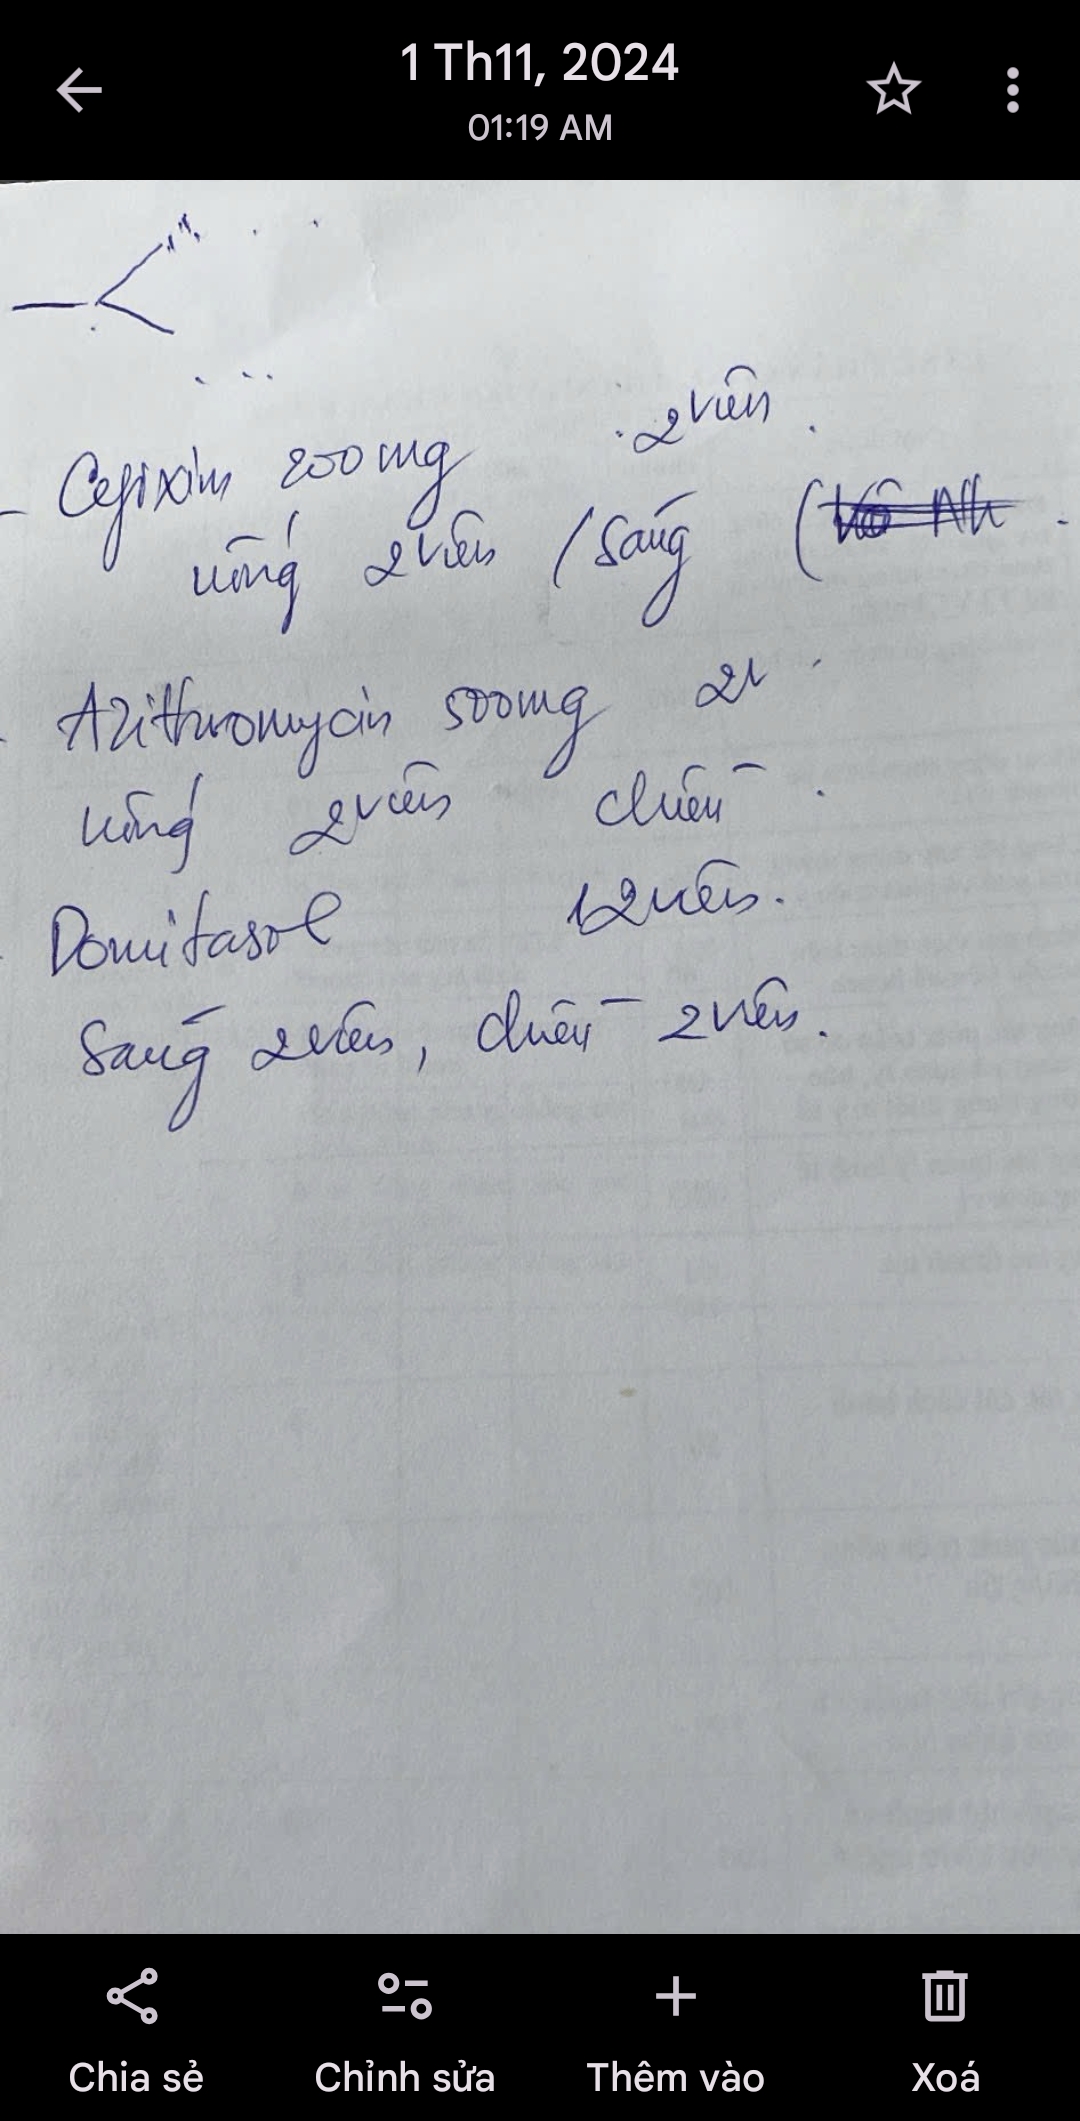 1 Th11, 2024
01:19 AM
- Cefixim 200mg . 2 viên .
uống 2 viên / sáng (
- Azithromycin 500mg 2v
uống 2 viên chiều .
- Domitasol 12 viên.
Sáng 2 viên, chiều 2 viên.
Chia sẻ
Chỉnh sửa
Thêm vào
Xoá